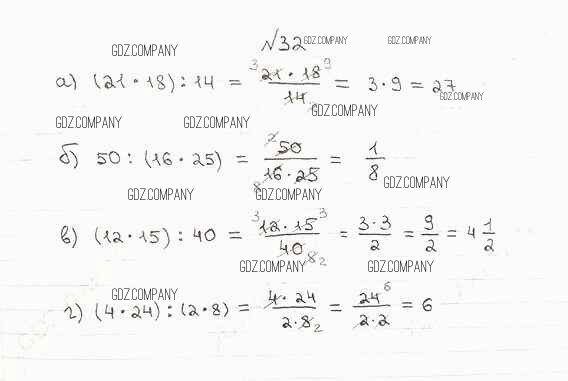 №32 GDZ.COMPANY GDZ.COMPANY
GDZ.COMPANY
а) (21 · 18) : 14 = ³21 · 18⁹ / 14₂ = 3 · 9 = 27
GDZ.COMPANY
GDZ.COMPANY
GDZ.COMPANY GDZ.COMPANY
б) 50 : (16 · 25) = ²50 / ₈16 · 25 = 1/8
GDZ.COMPANY
GDZ.COMPANY GDZ.COMPANY
в) (12 · 15) : 40 = ³12 · 15³ / 40₈₂ = 3 · 3 / 2 = 9/2 = 4 1/2
GDZ.COMPANY GDZ.COMPANY
GDZ.COMPANY
г) (4 · 24) : (2 · 8) = 4 · 24 / 2 · 8₂ = 24⁶ / 2 · 2 = 6